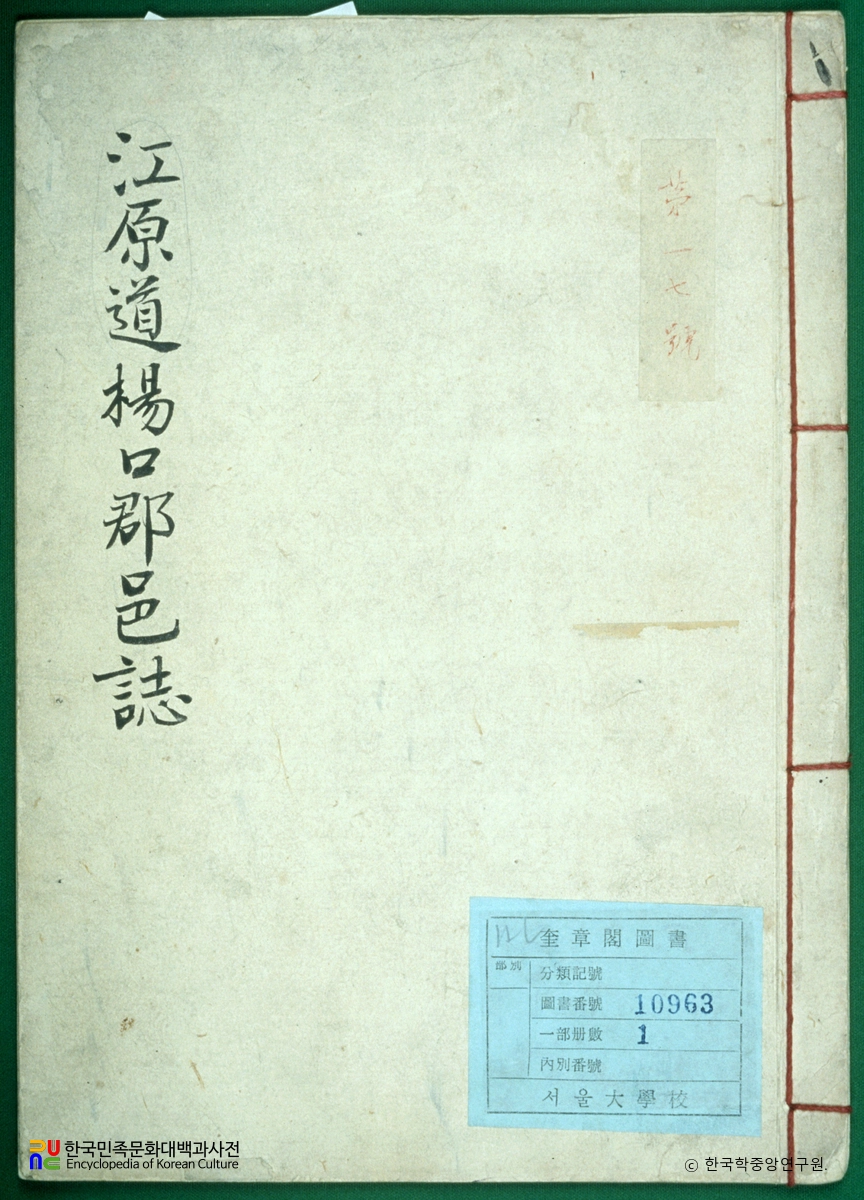 江原道楊口郡邑誌
第一七號
奎章閣圖書
部別
分類記號
圖書番號 10963
一部册數 1
內別番號
서울大學校
한국민족문화대백과사전
Encyclopedia of Korean Culture
© 한국학중앙연구원.